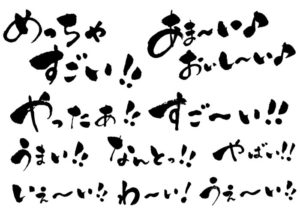 めっちゃ
すごい!!
あま～い♪
おいし～い♪
やったぁ!!
すご～い!!
うまい!!
なんとっ!!
やばい!!
いぇ～い!!
わ～い!
うぇ～い!!